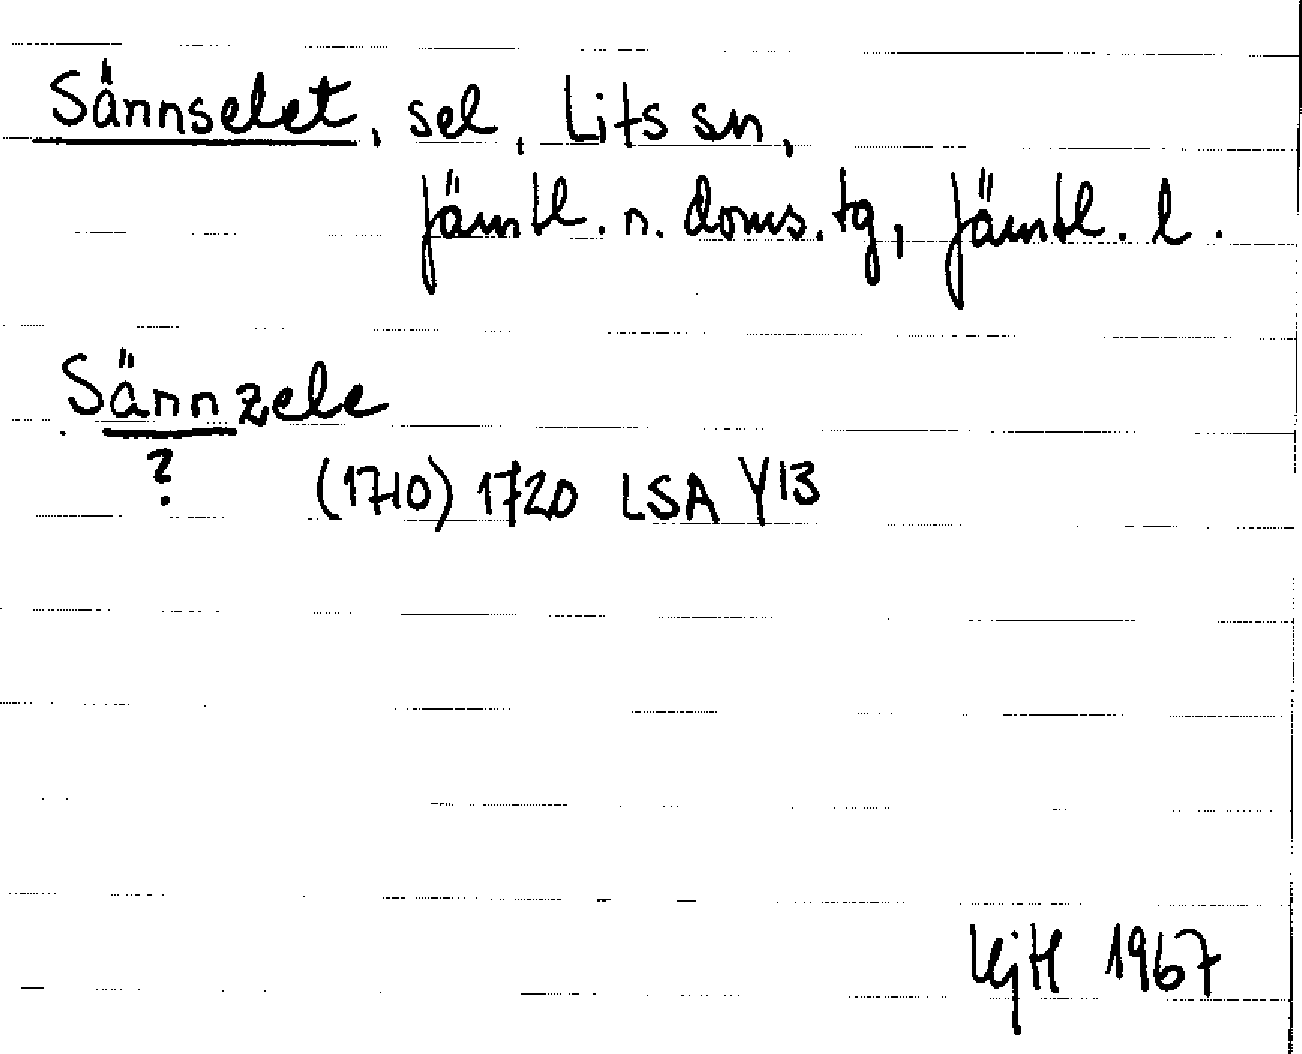 Sännselet, sel, Lits sn,
Jämtl. n. doms. tg, Jämtl. l.
Sännzele
? (1710) 1720 LSA Y13
KjH 1967